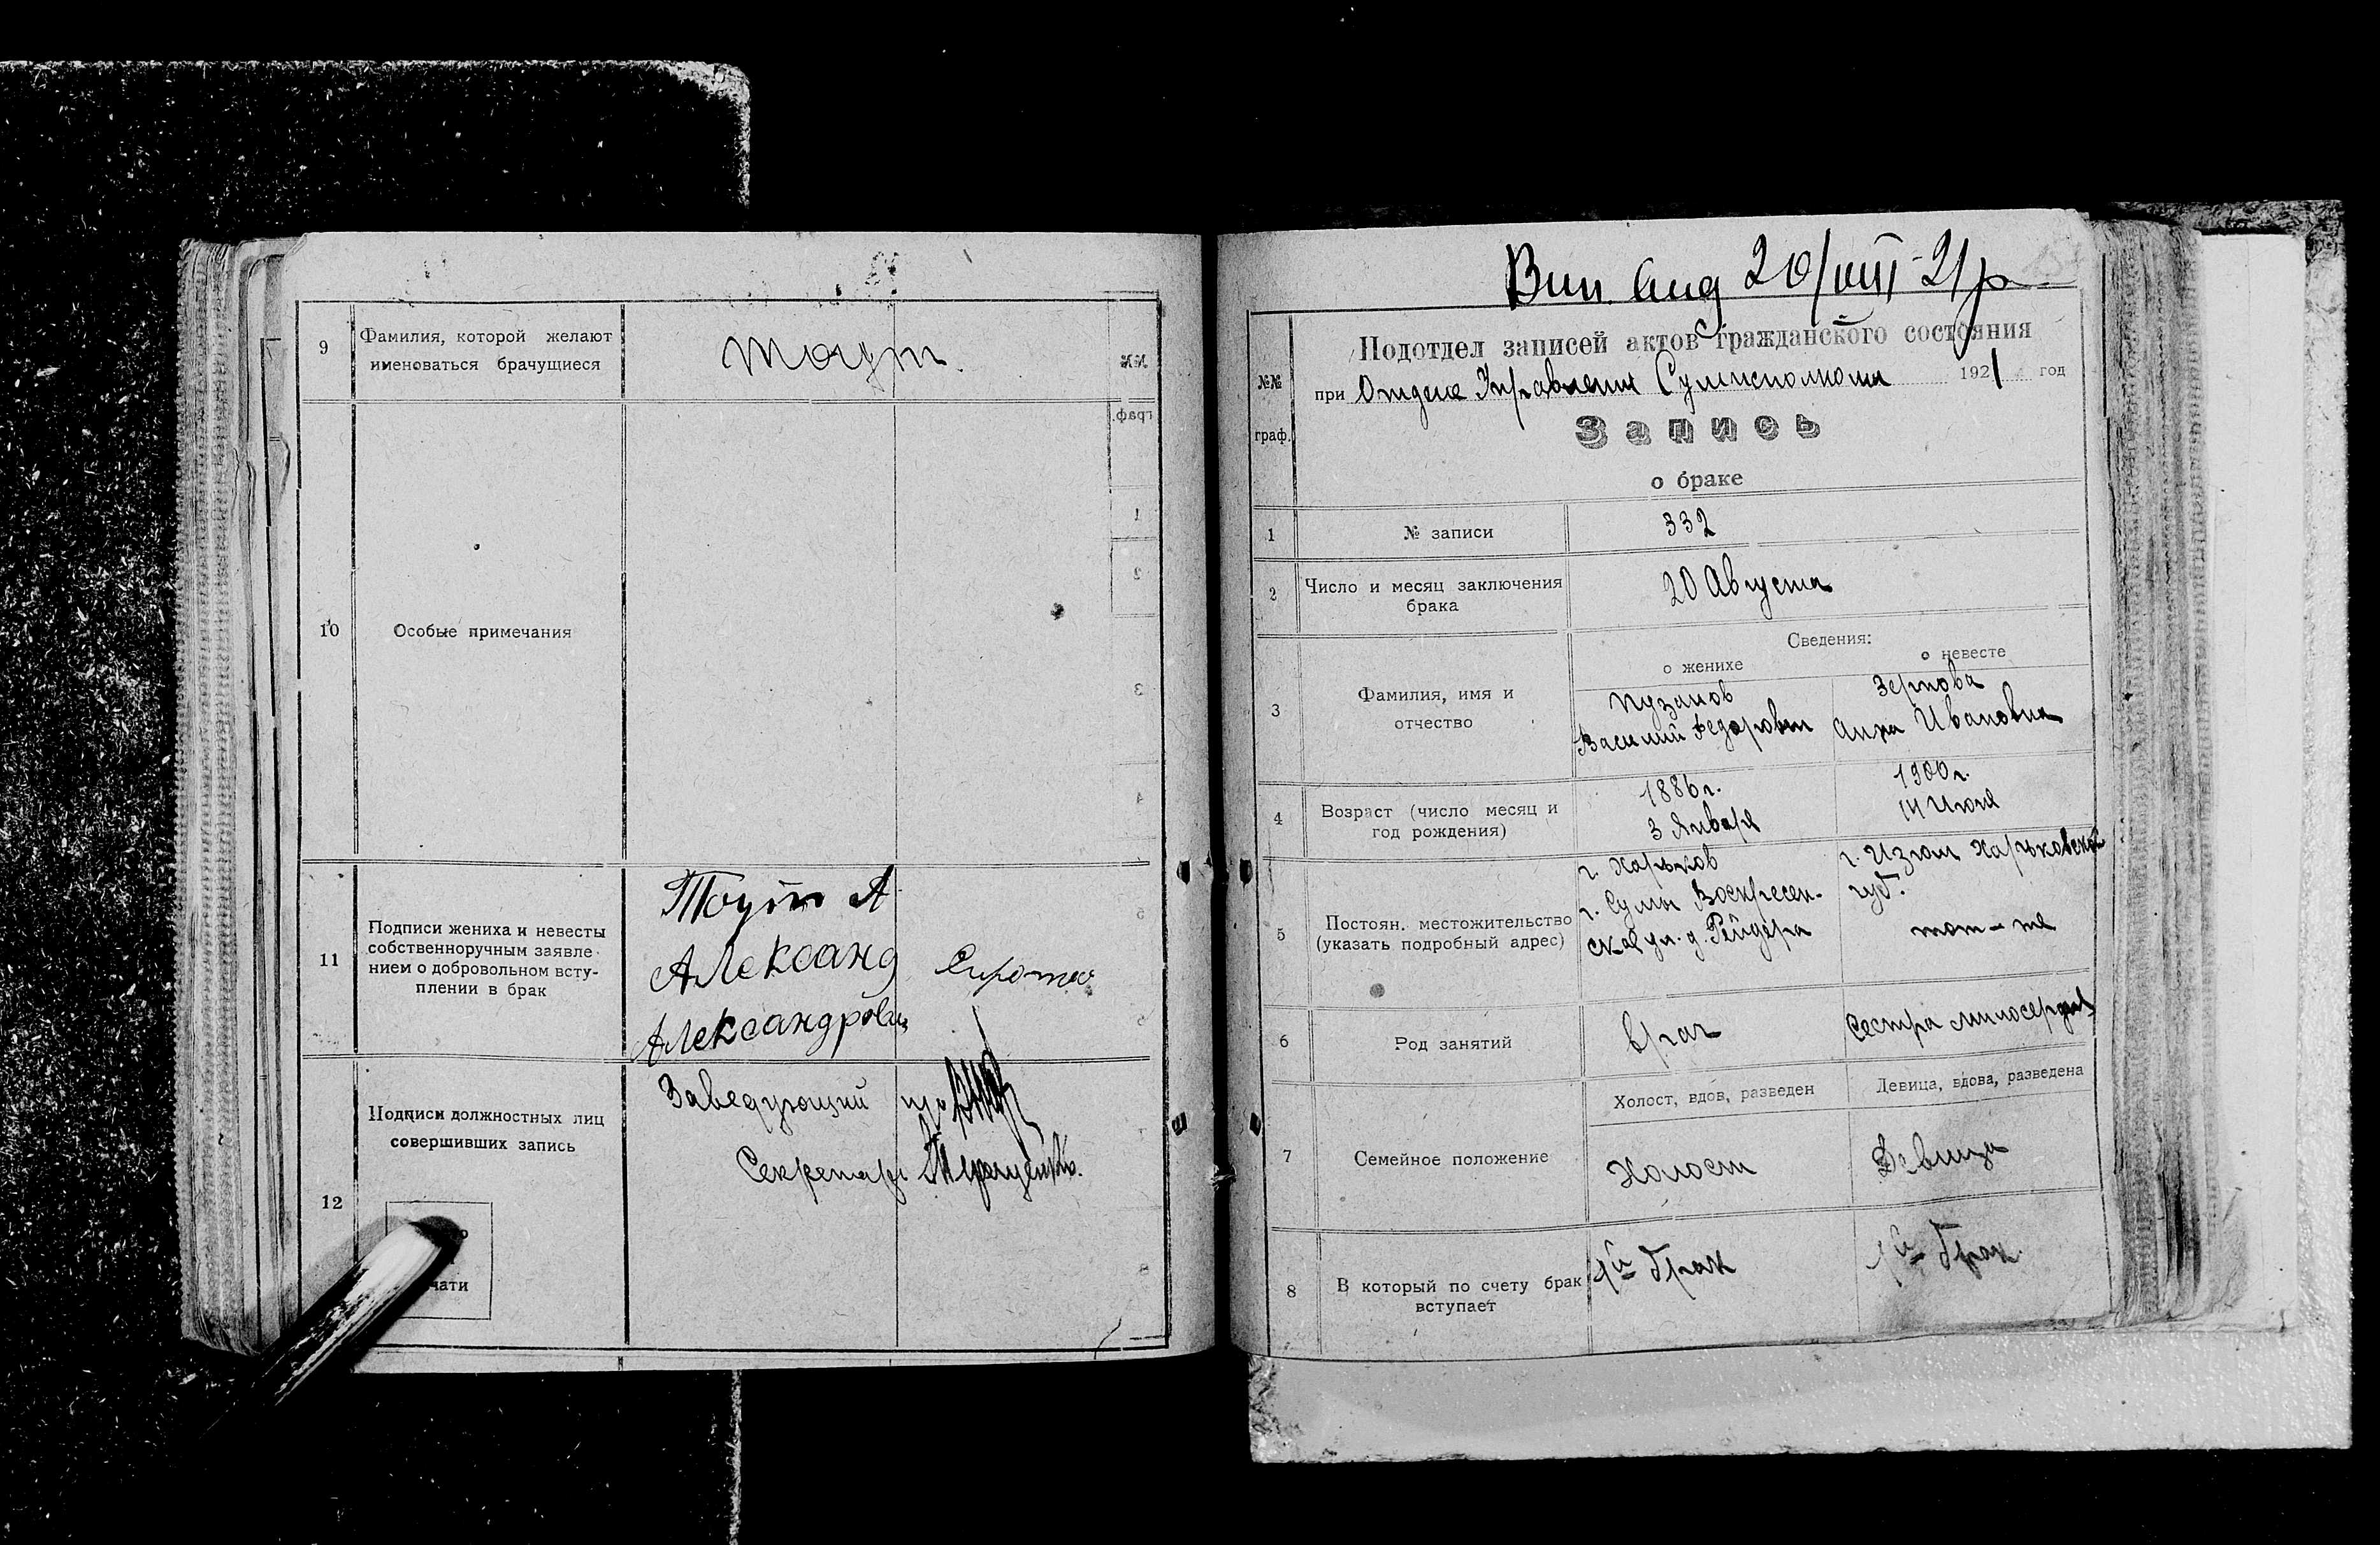 9
Фамилия, которой желают
именоваться брачущиеся
Тоут.
10
Особые примечания
11
Подписи жениха и невесты
собственноручным заявле-
нием о добровольном всту-
плении в брак
Тоут А
Александ
Александрович
Сирота
12
Подписи должностных лиц
совершивших запись
Заведующий
Секретарь
чати
20/VIII-21 р
Подотдел записей актов гражданского состояния
№№
граф.
при Отделе Управления Сумисполкома 1921 год
Запись
о браке
1
№ записи
332
2
Число и месяц заключения
брака
20 Августа
Сведения:
о женихе
о невесте
3
Фамилия, имя и
отчество
Пузанов
Василий Федорович
Зернова
Анна Ивановна
4
Возраст (число месяц и
год рождения)
1886 г.
3 Января
1900 г.
14 Июля
5
Постоян. местожительство
(указать подробный адрес)
г. Харьков
г. Сумы Воскресен-
ская ул. д. Рейдера
г. Изюм Харьковской
губ.
там-же
6
Род занятий
врач
Сестра милосердия
7
Семейное положение
Холост, вдов, разведен
Девица, вдова, разведена
Холост
Девица
8
В который по счету брак
вступает
1й брак
1й брак